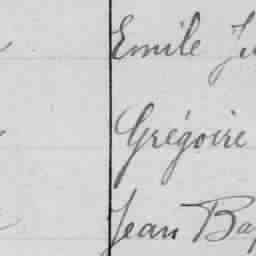 Emile
Grégoire
Jean Bap